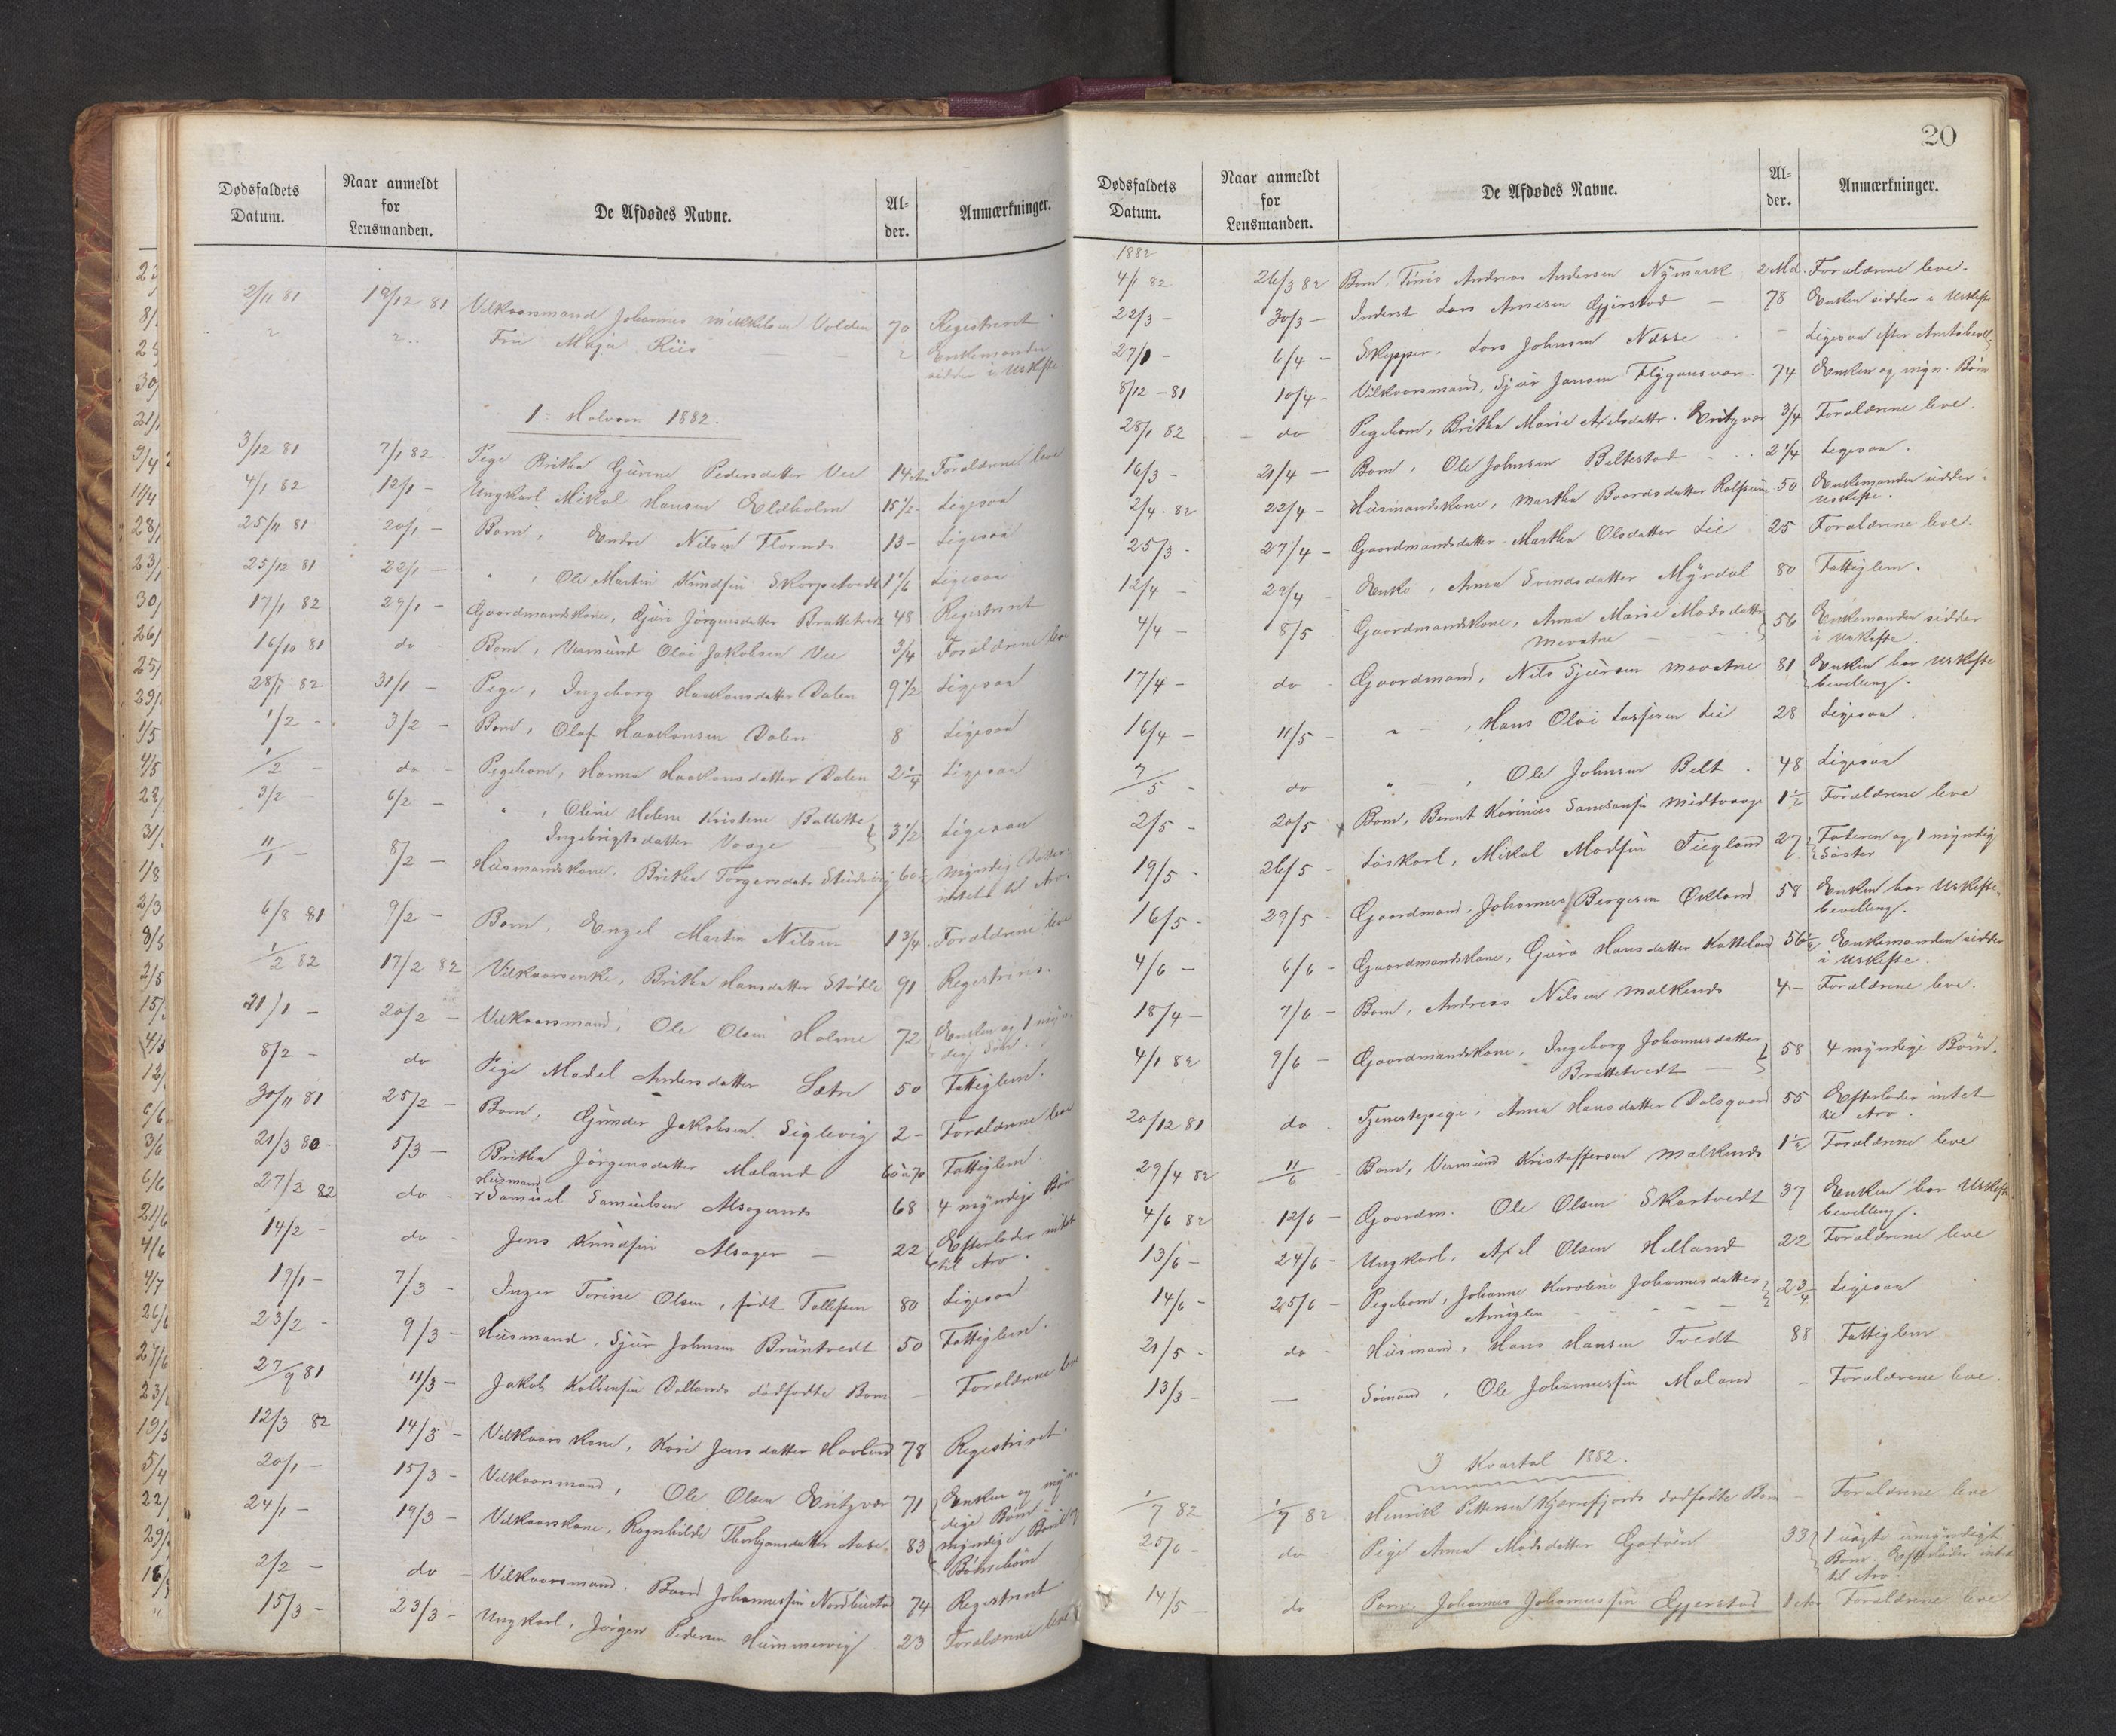 Dødsfaldets Datum. Naar anmeldt for Lensmanden. De Afdødes Navne. Al-der. Anmærkninger.
2/11 81 19/12 81 Vilkaarsmand Johannes Mikkelsen Volden 70 Registreret
Fru Maja Riis Enkemanden
sidder i Uskifte
1. Halvaar 1882.
3/12 81 7/1 82 Pige Britha Gurine Pedersdatter Vee 14 Forældrene leve
4/1 82 12/1 - Ungkarl Mikal Hansen Eldholm 15 1/2 - Ligesaa
25/11 81 20/1 - Barn, Endre Nilsen Flornes 13 - Ligesaa
25/12 81 22/1 - " , Ole Martin Knudsen Skarpetvedt 1 1/6 Ligesaa
17/1 82 29/1 - Gaardmandskone, Guri Jørgensdatter Brattetvedt 48 Registreret
16/10 81 do Barn, Vermund Olai Jakobsen Vee 3/4 Forældrene leve
28/1 82 31/1 - Pige, Ingeborg Haakonsdatter Dalen 9 1/2 Ligesaa
1/2 - 3/2 - Barn, Olaf Haakonsen Dalen 8 Ligesaa
1/2 - do - Pigebarn, Hanna Haakonsdatter Dalen 2 1/4 Ligesaa
3/2 - 6/2 - " , Oline Helene Kristene Ballette
Ingebrigtsdatter Vaage } 3 1/2 Ligesaa
11/1 - 8/2 - Husmandskone, Britha Torgersdatr 60 Myndig Datter
intet til Arv.
6/8 81 9/2 - Barn, Engel Martin Nilsen 1 3/4 Forældrene leve
1/2 82 17/2 82 Vilkaarsenke, Britha Hansdatter Stødle 91 Registreres.
21/1 - 20/2 - Vilkaarsmand, Ole Olsen Holme 72 Enken og 1 myn-
dig Søn.
8/2 - do Pige Madel Andersdatter Sætre 50 Fattiglem.
30/11 81 25/2 - Barn, Gunder Jakobsen Siglevig 2 - Forældrene leve
21/3 80 - 5/3 - Britha Jørgensdatter Maland 60 a 70 Fattiglem.
27/2 82 do Husmand Samuel Samuelsen Alsagernes 68 4 myndige Børn
14/2 - do - Jens Knudsen Alsager - 22 Efterlader intet
til Arv.
19/1 - 7/3 - Inger Torine Olsen, født Tollefsen 80 Ligesaa
23/2 - 9/3 - Husmand, Sjur Johnsen Bruntvedt 50 Fattiglem.
27/9 81 11/3 - Jakob Kolbensen Dallands dødfødte Barn - Forældrene leve
12/3 82 14/3 - Vilkaarskone, Kari Jensdatter 78 Registreret.
20/1 - 15/3 - Vilkaarsmand, Ole Olsen Eritzvær 71 Enken og myn-
dige Børn
24/1 - 19/3 - Vilkaarskone, Ragnhilde Thorbjørnsdatter Aase 83 myndige Børn og
Børnebørn
2/2 - do - Vilkaarsmand. Baard Johannessen Nordhustad 74 Registreret
15/3 - 23/3 - Ungkarl, Jørgen Pedersen Hummervig 23 Forældrene leve
20
Dødsfaldets Datum. Naar anmeldt for Lensmanden. De Afdødes Navne. Al-der. Anmærkninger.
1882
4/1 82 26/3 82 Barn, Tønnes Andreas Andersen Nymark 2 Md. Forældrene leve.
22/3 - 30/3 - Inderst Lars Arnesen Gjerstad - 78 Enken sidder i Uskifte
27/1 - 6/4 - Skipper. Lars Johnsen Næsse - Ligesaa efter Amtsbevill.
8/12 - 81 10/4 - Vilkaarsmand, Sjur Jansen Flygansvær. 74 Enken og mgn. Børn
28/1 82 - do Pigebarn, Britha Marie Axelsdattr. Eritzvær 3/4 Forældrene leve.
16/3 - 21/4 - Barn, Ole Johnsen Beltestad 2 1/4 Ligesaa.
2/4 - 82 22/4 - Husmandskone, Martha Baardsdatter 50 Enkemanden sidder i
Uskifte.
25/3 - 27/4 - Gaardmandsdatter. Martha Olsdatter Lie 25 Forældrene leve.
12/4 - 29/4 - Enke, Anna Svendsdatter Myrdal 80 Fattiglem.
4/4 - 8/5 Gaardmandskone, Anna Marie Madsdatter
Mevatne } 56 Enkemanden sidder
i Uskifte.
17/4 - do - Gaardmand, Nils Sjursen Mevatne 81 Enken har Uskifte
bevilling.
16/4 - 11/5 - " - , Hans Olai Larsen Lie 28 Ligesaa.
7/5 - do " - , Ole Johnsen Belt. 48 Ligesaa
2/5 - 20/5 Barn, Bernt Korinius Samsonsen Midtvaage 1 1/2 Forældrene leve
19/5 - 26/5 - Løskarl, Mikal Madsen Tiegland 27 Faderen og 1 myndig
Søster
16/5 - 29/5 - Gaardmand, Johannes Bergesen Økland 58 Enken har Uskifte-
bevilling.
4/6 - 6/6 - Gaardmandskone, Guro Hansdatter Katteland 56 1/2 Enkemanden sidder
i Uskifte.
18/4 - 7/6 - Barn, Andreas Nilsen Malkenes 4 - Forældrene leve.
4/1 82 9/6 - Gaardmandskone, Ingeborg Johannesdatter
Brattetvedt } 58 4 myndige Børn.
20/12 81 do - Tjenestepige, Anna Hansdatter Dalsgaard 55 Efterlader intet
til Arv.
29/4 82 11/6 - Barn, Vermund Kristoffersen Malkenes 1 1/2 Forældrene leve
4/6 82 12/6 - Gaardm. Ole Olsen Skartvedt 37 Enken har Uskifte
bevilling.
13/6 - 24/6 - Ungkarl, Axel Olsen Helland 22 Forældrene leve
14/6 - 25/6 - Pigebarn, Johanne Karoline Johannesdatter
} 2 3/4 Ligesaa
21/5 - do - Husmand, Hans Hansen Tvedt 88 Fattiglem
13/3 - - Sømand, Ole Johannessen Maland - Forældrene leve.
3 Kvartal 1882.
1/7 82 1/7 82 Henrik Pettersen Kjærrefjords dødfødte Barn - Forældrene leve
25/6 - do Pige Anna Madsdatter Gadøen 33 1 uægte umyndigt
Barn. Efterlader intet
til Arv.
14/5 - do Barn. Johannes Johannessen Gjerstad 1 Aar Forældrene leve